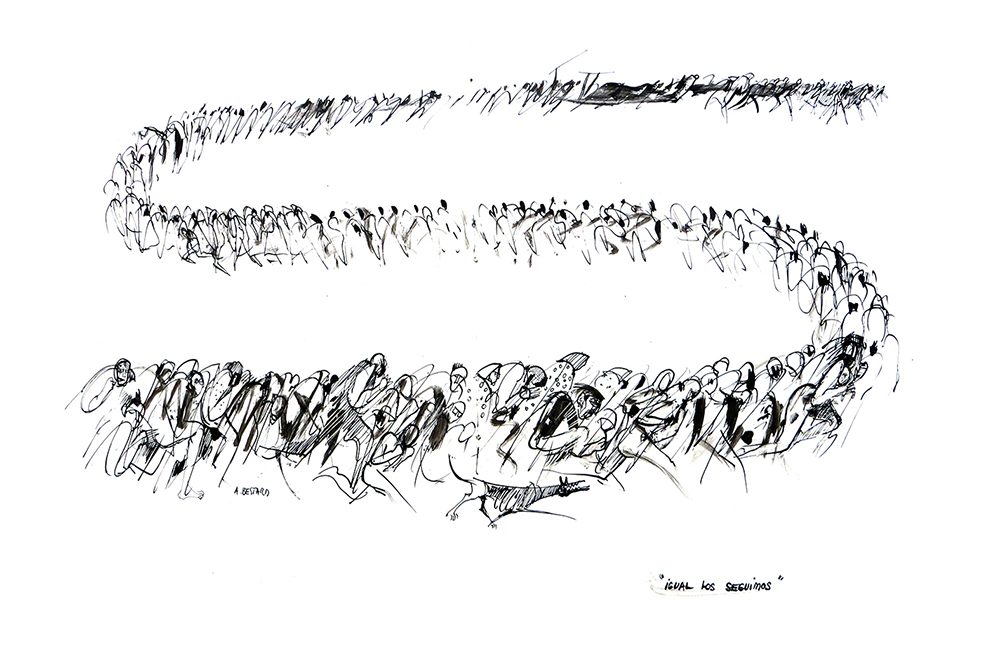 A BESTARD
"iGUAL LOS SEGUiMOS"